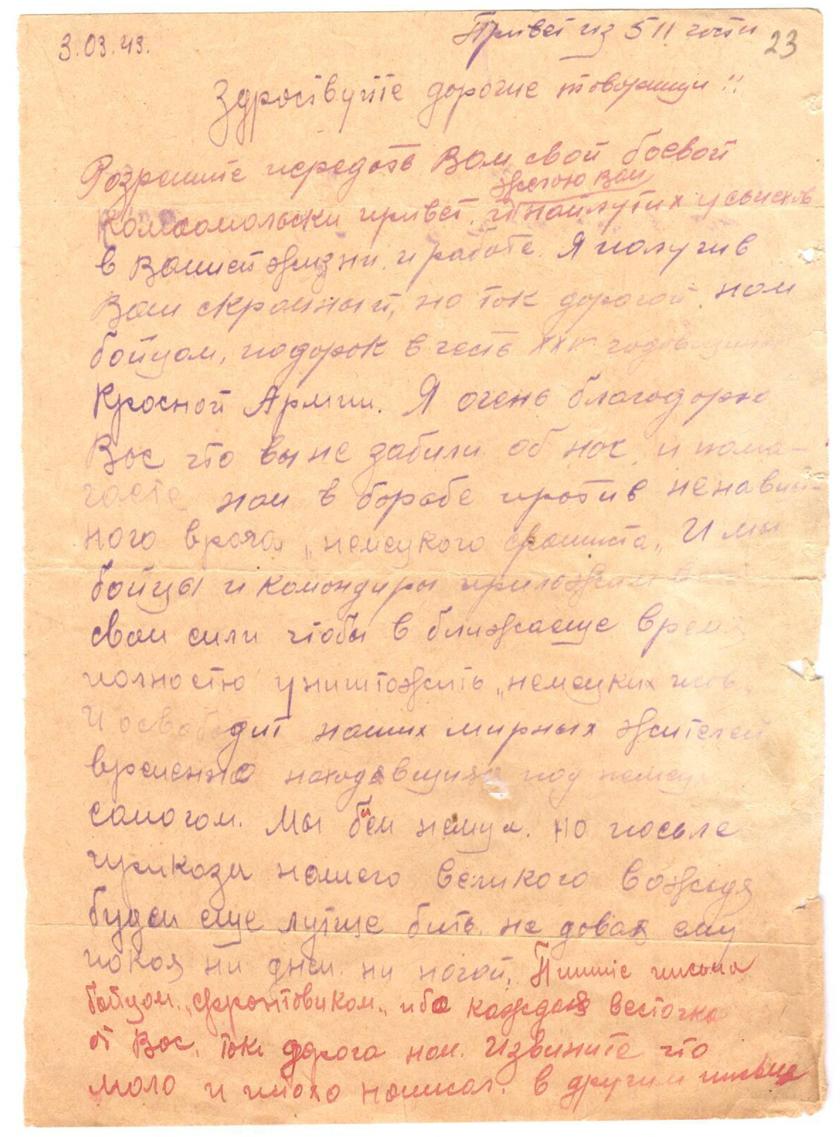 3.03.43.
Привет из 511 части 23
Здроствуйте дорогие товорищи!!
Розрешите передоть Вом свой боевой
желою Вам
Комсомольски привет, и ноилутих усыехов
в Вошей жизни и работе. Я получив
Вош скромный, но ток дорогой ном
бойцом, подорок в честь XXV годовщины
Кросной Армии. Я очень благодорю
Вос что вы не забили об нос, и пома-
гоете ном в борьбе против ненавис-
ного врога „немецкого фошиста„ И мы
бойцы и комондиры приложим
свои сили чтобы в ближаеще время
полностю уничтожить „немецких
И освободит ноших мирных жителей
временно находевщихся под немец
сопогом. Мы бием немца. но посьле
прикоза ношего великого вождя
будем еще лутще бить. не довая ему
покоя ни днем. ни ночой. Пишите письма
бойцом „фронтовиком„ ибо каждоя весточка
от Вос, ток дорога ном. Извините что
моло и плохо нописол. в другим письме